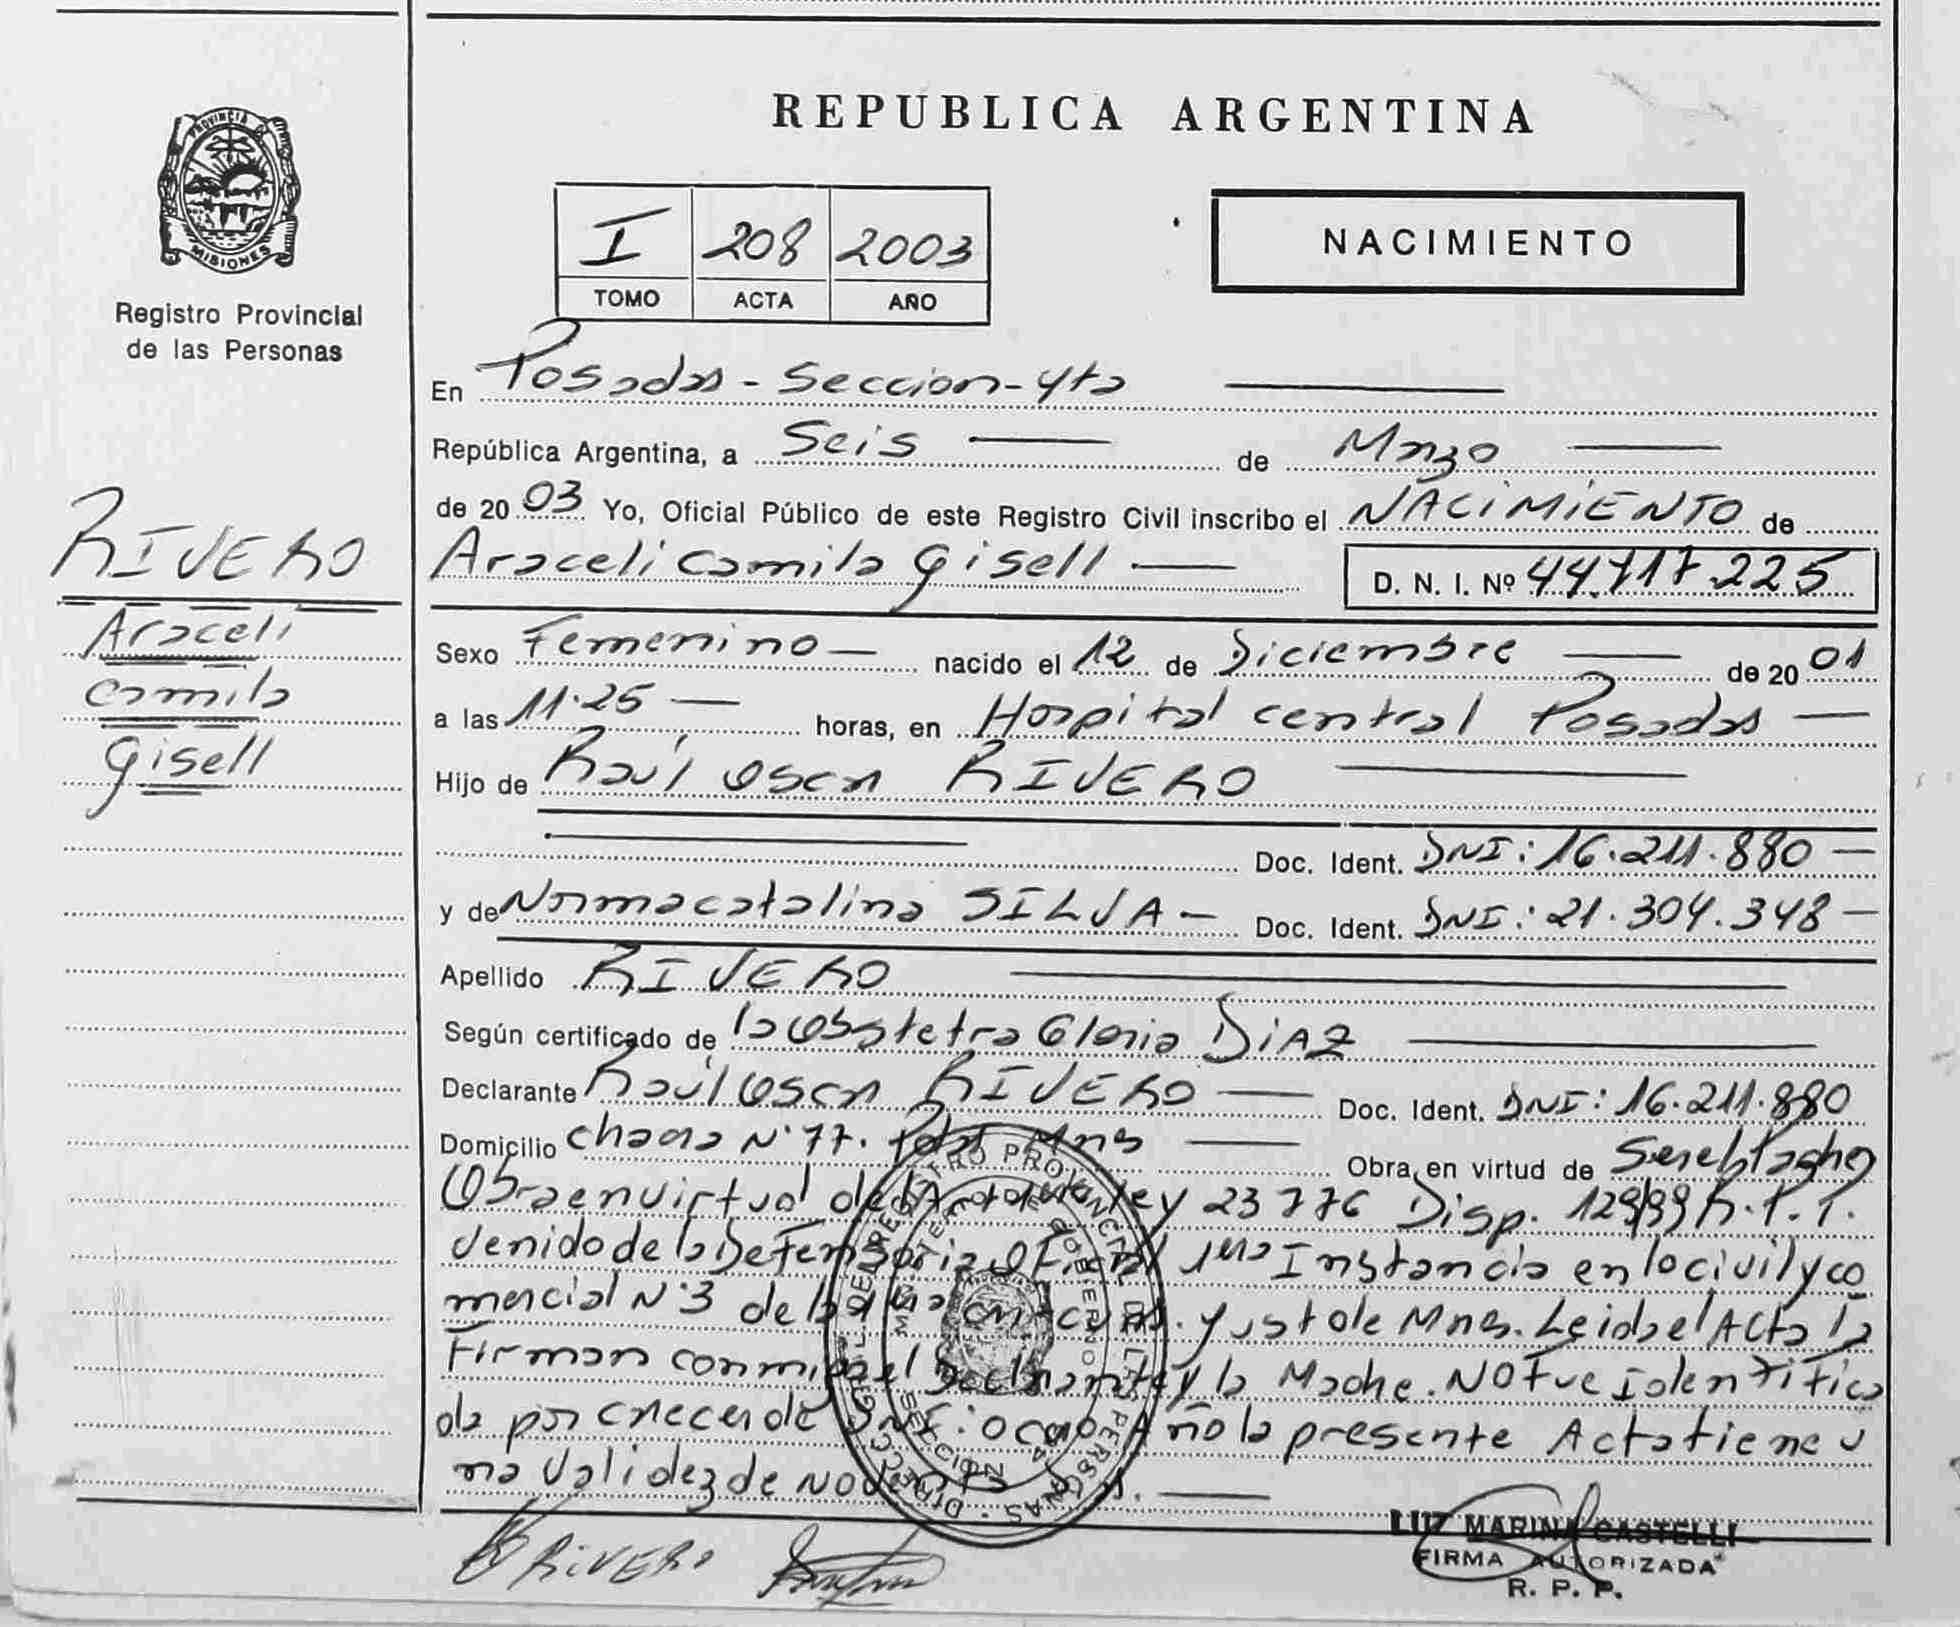 REPUBLICA ARGENTINA
PROVINCIA D
MISIONES
Registro Provincial
de las Personas
I 208 2003
TOMO ACTA AÑO
NACIMIENTO
En Posadas - Seccion - 4ta
República Argentina, a Seis de Marzo
de 2003 Yo, Oficial Público de este Registro Civil inscribo el NACIMIENTO de
Araceli Camila Gisell D. N. I. Nº 44.717.225
RIVERO
Araceli
Camila
Gisell
Sexo Femenino nacido el 12 de Diciembre de 2001
a las 11.25 horas, en Hospital central Posadas
Hijo de Raúl Oscar RIVERO
Doc. Ident. DNI: 16.211.880
y de Norma catalina SILVA Doc. Ident. DNI: 21.304.348
Apellido RIVERO
Según certificado de la Obstetra Gloria DiAZ
Declarante Raúl Oscar RIVERO Doc. Ident. DNI: 16.211.880
Domicilio chacra N°77. Pdas Mns Obra en virtud de
Obra en virtud del ley 23776 Disp. 129/99 R.P.P.
venido de la Defensoria Oficial 1era Instancia en lo civil y co
mercial N°3 de la 1era y ust de Mns. Leida el Acta la
Firman conmigo el Declarante y la Madre. NO Fue Identifica
da por crecer de DNI: Año la presente Acta tiene u
na Validez de noventa
DIRECC GRAL. DEL REGISTRO PROVINCIAL DE LAS PERSONAS
MINISTERIO DE GOBIERNO
RIVERO
LUZ MARINA CASTELLI
FIRMA AUTORIZADA
R. P. P.